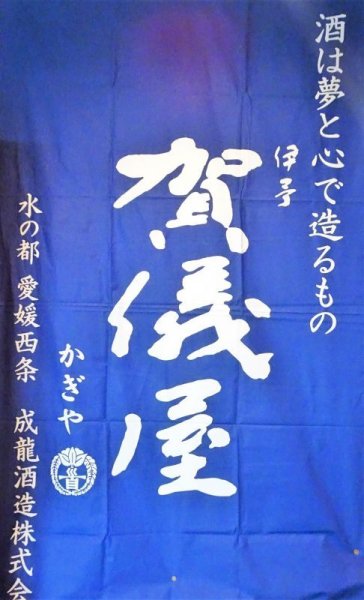 酒は夢と心で造るもの
伊予
賀儀屋
かぎや
水の都 愛媛西条 成龍酒造株式会